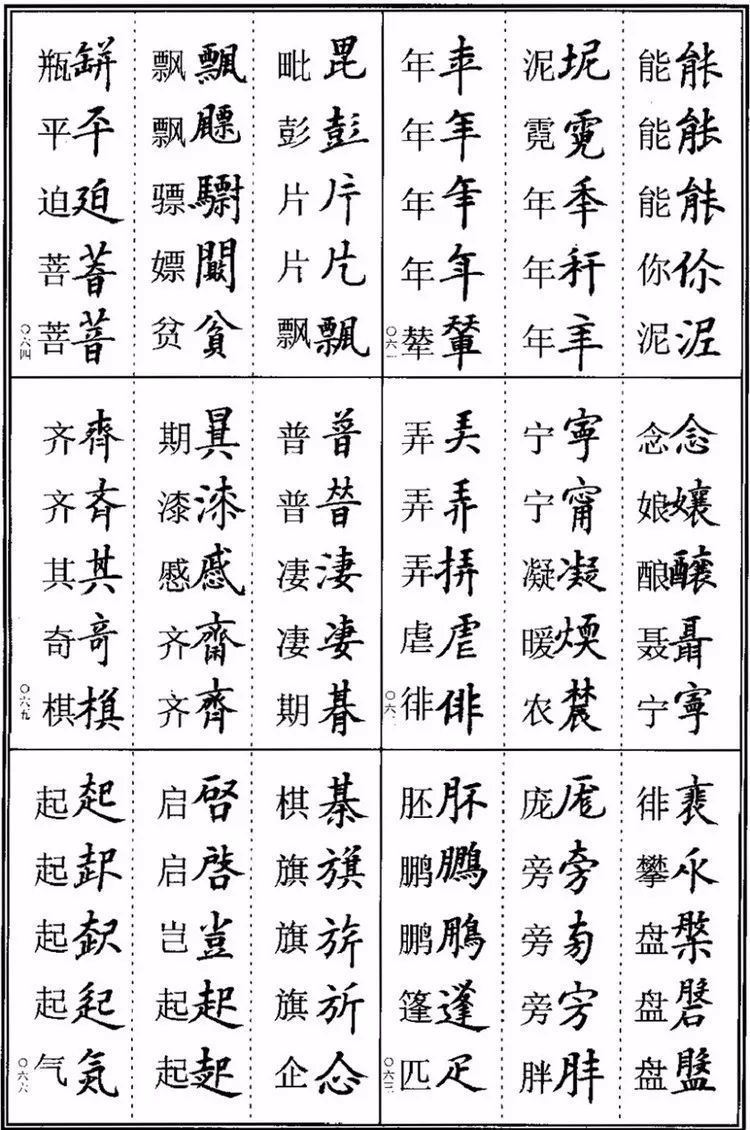 能能 能能 能能 你你 泥泥
泥坭 霓霓 年秊 年秆 年年
年年 年年 年年 年年 辇輦
〇六一
念念 娘孃 酿釀 聂聶 宁寧
宁寧 宁甯 凝凝 暖煗 农農
弄弄 弄弄 弄挵 虐虐 徘俳
〇六二
徘裵 攀 盘槃 盘磐 盘盤
庞庬 旁旁 旁旁 旁旁 胖胖
胚胚 鹏鵬 鹏鵬 篷蓬 匹疋
〇六三
毗毘 彭彭 片片 片片 飘飄
飘飄 飘飃 骠驃 嫖闝 贫貧
瓶缾 平平 迫廹 菩 菩
〇六四
普普 普普 凄淒 凄凄 期朞
期 漆漆 慼慼 齐齊 齐齊
齐齊 齐斉 其其 奇竒 棋棋
〇六五
棋棊 旗旗 旗旂 旗旂 企企
启啓 启啟 岂豈 起起 起起
起起 起起 起起 起起 气氣
〇六六